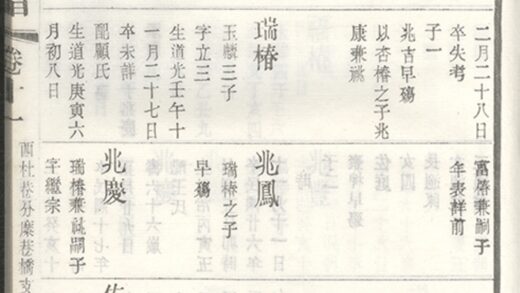 二月二十八日
卒失考
子一
兆吉早殤
以杏椿之子兆
康兼祧
瑞椿
玉麟三子
字立三
生道光壬午十
一月二十七日
卒未詳
配顧氏
生道光庚寅六
月初八日
兼嗣子
年表詳前
兆鳳
瑞椿之子
早殤
兆慶
瑞椿兼祧嗣子
字繼宗
卷十一
酉杜巷分縻巷橋支